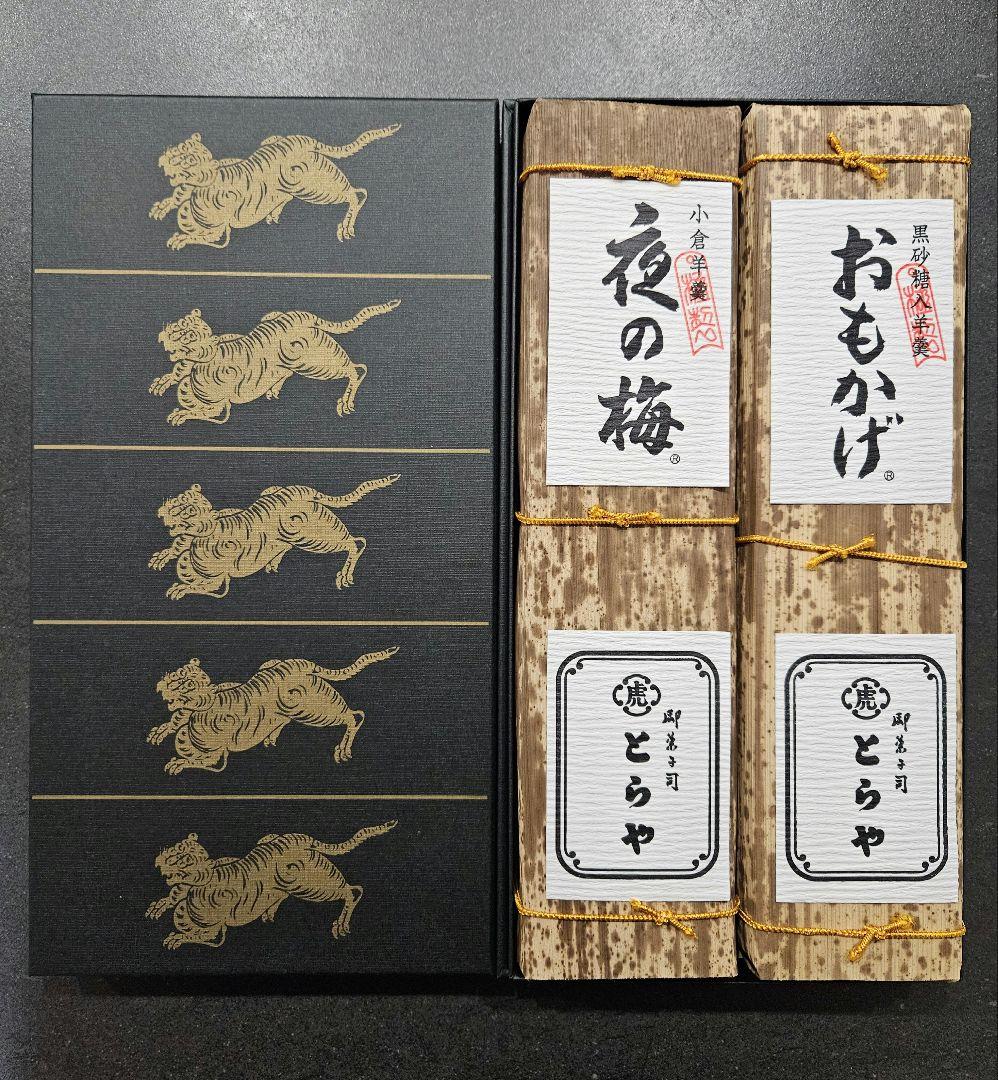 黒砂糖入羊羹
おもかげ®
小倉羊羹
夜の梅®
虎
御菓子司
とらや
虎
御菓子司
とらや